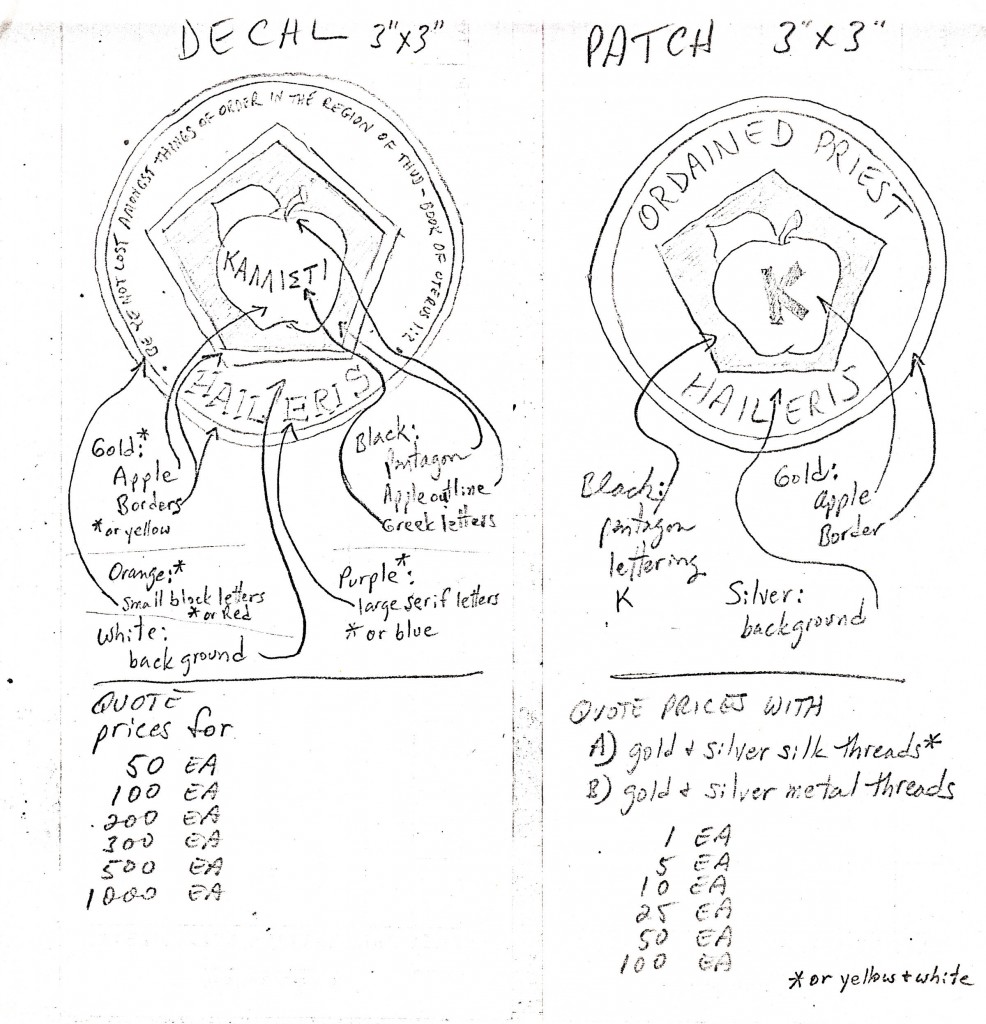 DECAL 3"X3"
BE YE NOT LOST AMONGST THINGS OF ORDER IN THE REGION OF THUD – BOOK OF UTERUS 1:2
ΚΑΛΛΙΣΤΙ
HAIL ERIS
Gold:*
Apple
Borders
*or yellow
Black:
pentagon
Apple outline
Greek letters
Orange:*
small block letters
*or Red
Purple*:
large serif letters
*or blue
White:
background
QUOTE
prices for
50 EA
100 EA
200 EA
300 EA
500 EA
1000 EA
PATCH 3"X3"
ORDAINED PRIEST
K
HAIL ERIS
Black:
pentagon
lettering
K
Gold:
Apple
Border
Silver:
background
QUOTE PRICES WITH
A) gold + silver silk threads*
B) gold + silver metal threads
1 EA
5 EA
10 EA
25 EA
50 EA
100 EA
*or yellow + white